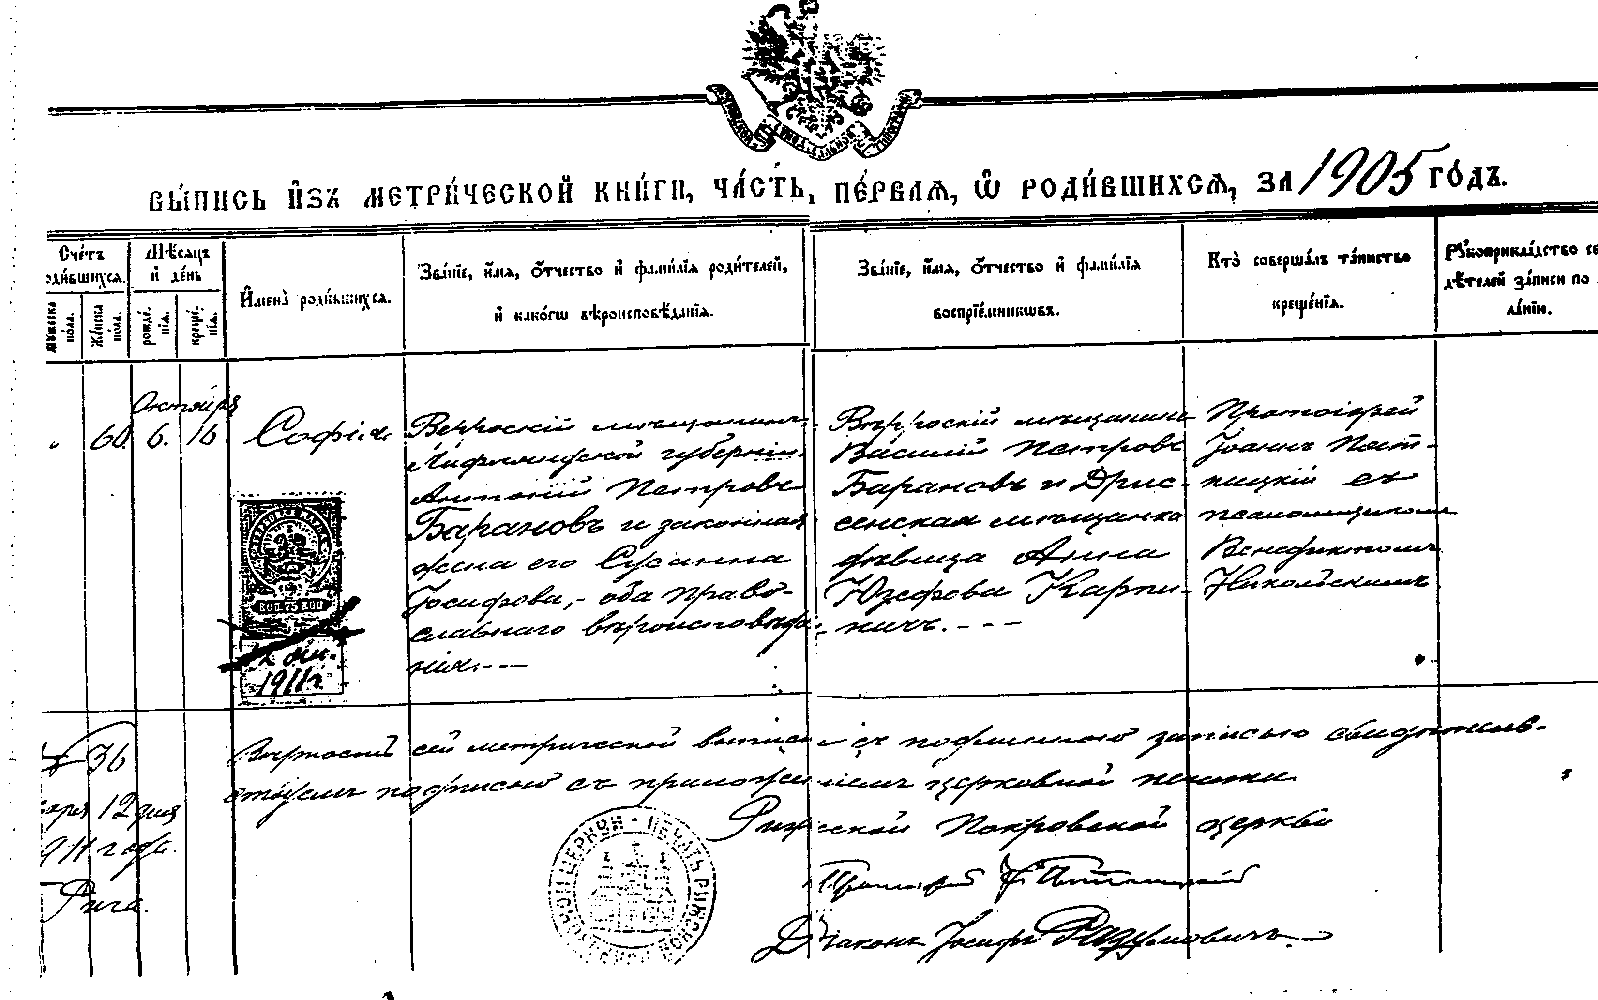 ВЫ́ПИСЬ И҆ЗЪ МЕТРИ́ЧЕСКОЙ КНИ́ГИ, ЧА́СТЬ, ПЕ́РВАѦ, Ѽ РОДИ́ВШИХСѦ, ЗА 1905 ГО́ДЪ.
Сче́тъ
роди́вшихсѧ.
Мѣ́сѧцъ
и҆ де́нь
Мꙋ́жеска
по́ла.
Же́нска
по́ла.
рожде́
нїѧ.
креще́
нїѧ.
И҆мена̀ роди́вшихсѧ.
Зва́нїе, и҆́мѧ, ѻ҆́тчество и҆ фами́лїѧ роди́телей,
и҆ како́гѡ вѣроисповѣ́данїѧ.
Зва́нїе, и҆́мѧ, ѻ҆́тчество и҆ фами́лїѧ
воспрїе́мникѡвъ.
Кто̀ соверша́лъ та́инство
креще́нїѧ.
Рꙋкоприкла́дство
дѣ́телей за́писи по
ла́нїю.
Октября
60. 6. 16
Софія
Верроскій мѣщанинъ
Лифляндской губерніи
Антоній Петровъ
Барановъ и законная
жена его Сусанна
Іосифова,- оба право-
славнаго вѣроисповѣда-
нія.---
Верроскій мѣщанинъ
Василій Петровъ
Барановъ и Дрис-
сенская мѣщанка
дѣвица Анна
Юзефова Карпи-
ничъ.---
Протоіерей
Іоаннъ Пят-
ницкій съ
псаломщикомъ
Венедиктомъ
Никольскимъ
КОП. 75 КОП
12 янв.
1911 г.
№ 36
варя 12 дня
1911 года.
Рига.
Вѣрность сей метрической выписи съ подлинною записью свидѣтельв-
ствуемъ подписью съ приложеніемъ церковной печати
Рижской Покровской церкви
Протоіерей І. Пятницкій
Діаконъ Іосифъ Разумовичъ.
ПЕЧАТЬ РИЖСКОЙ ПОКРОВСКОЙ ЦЕРКВИ